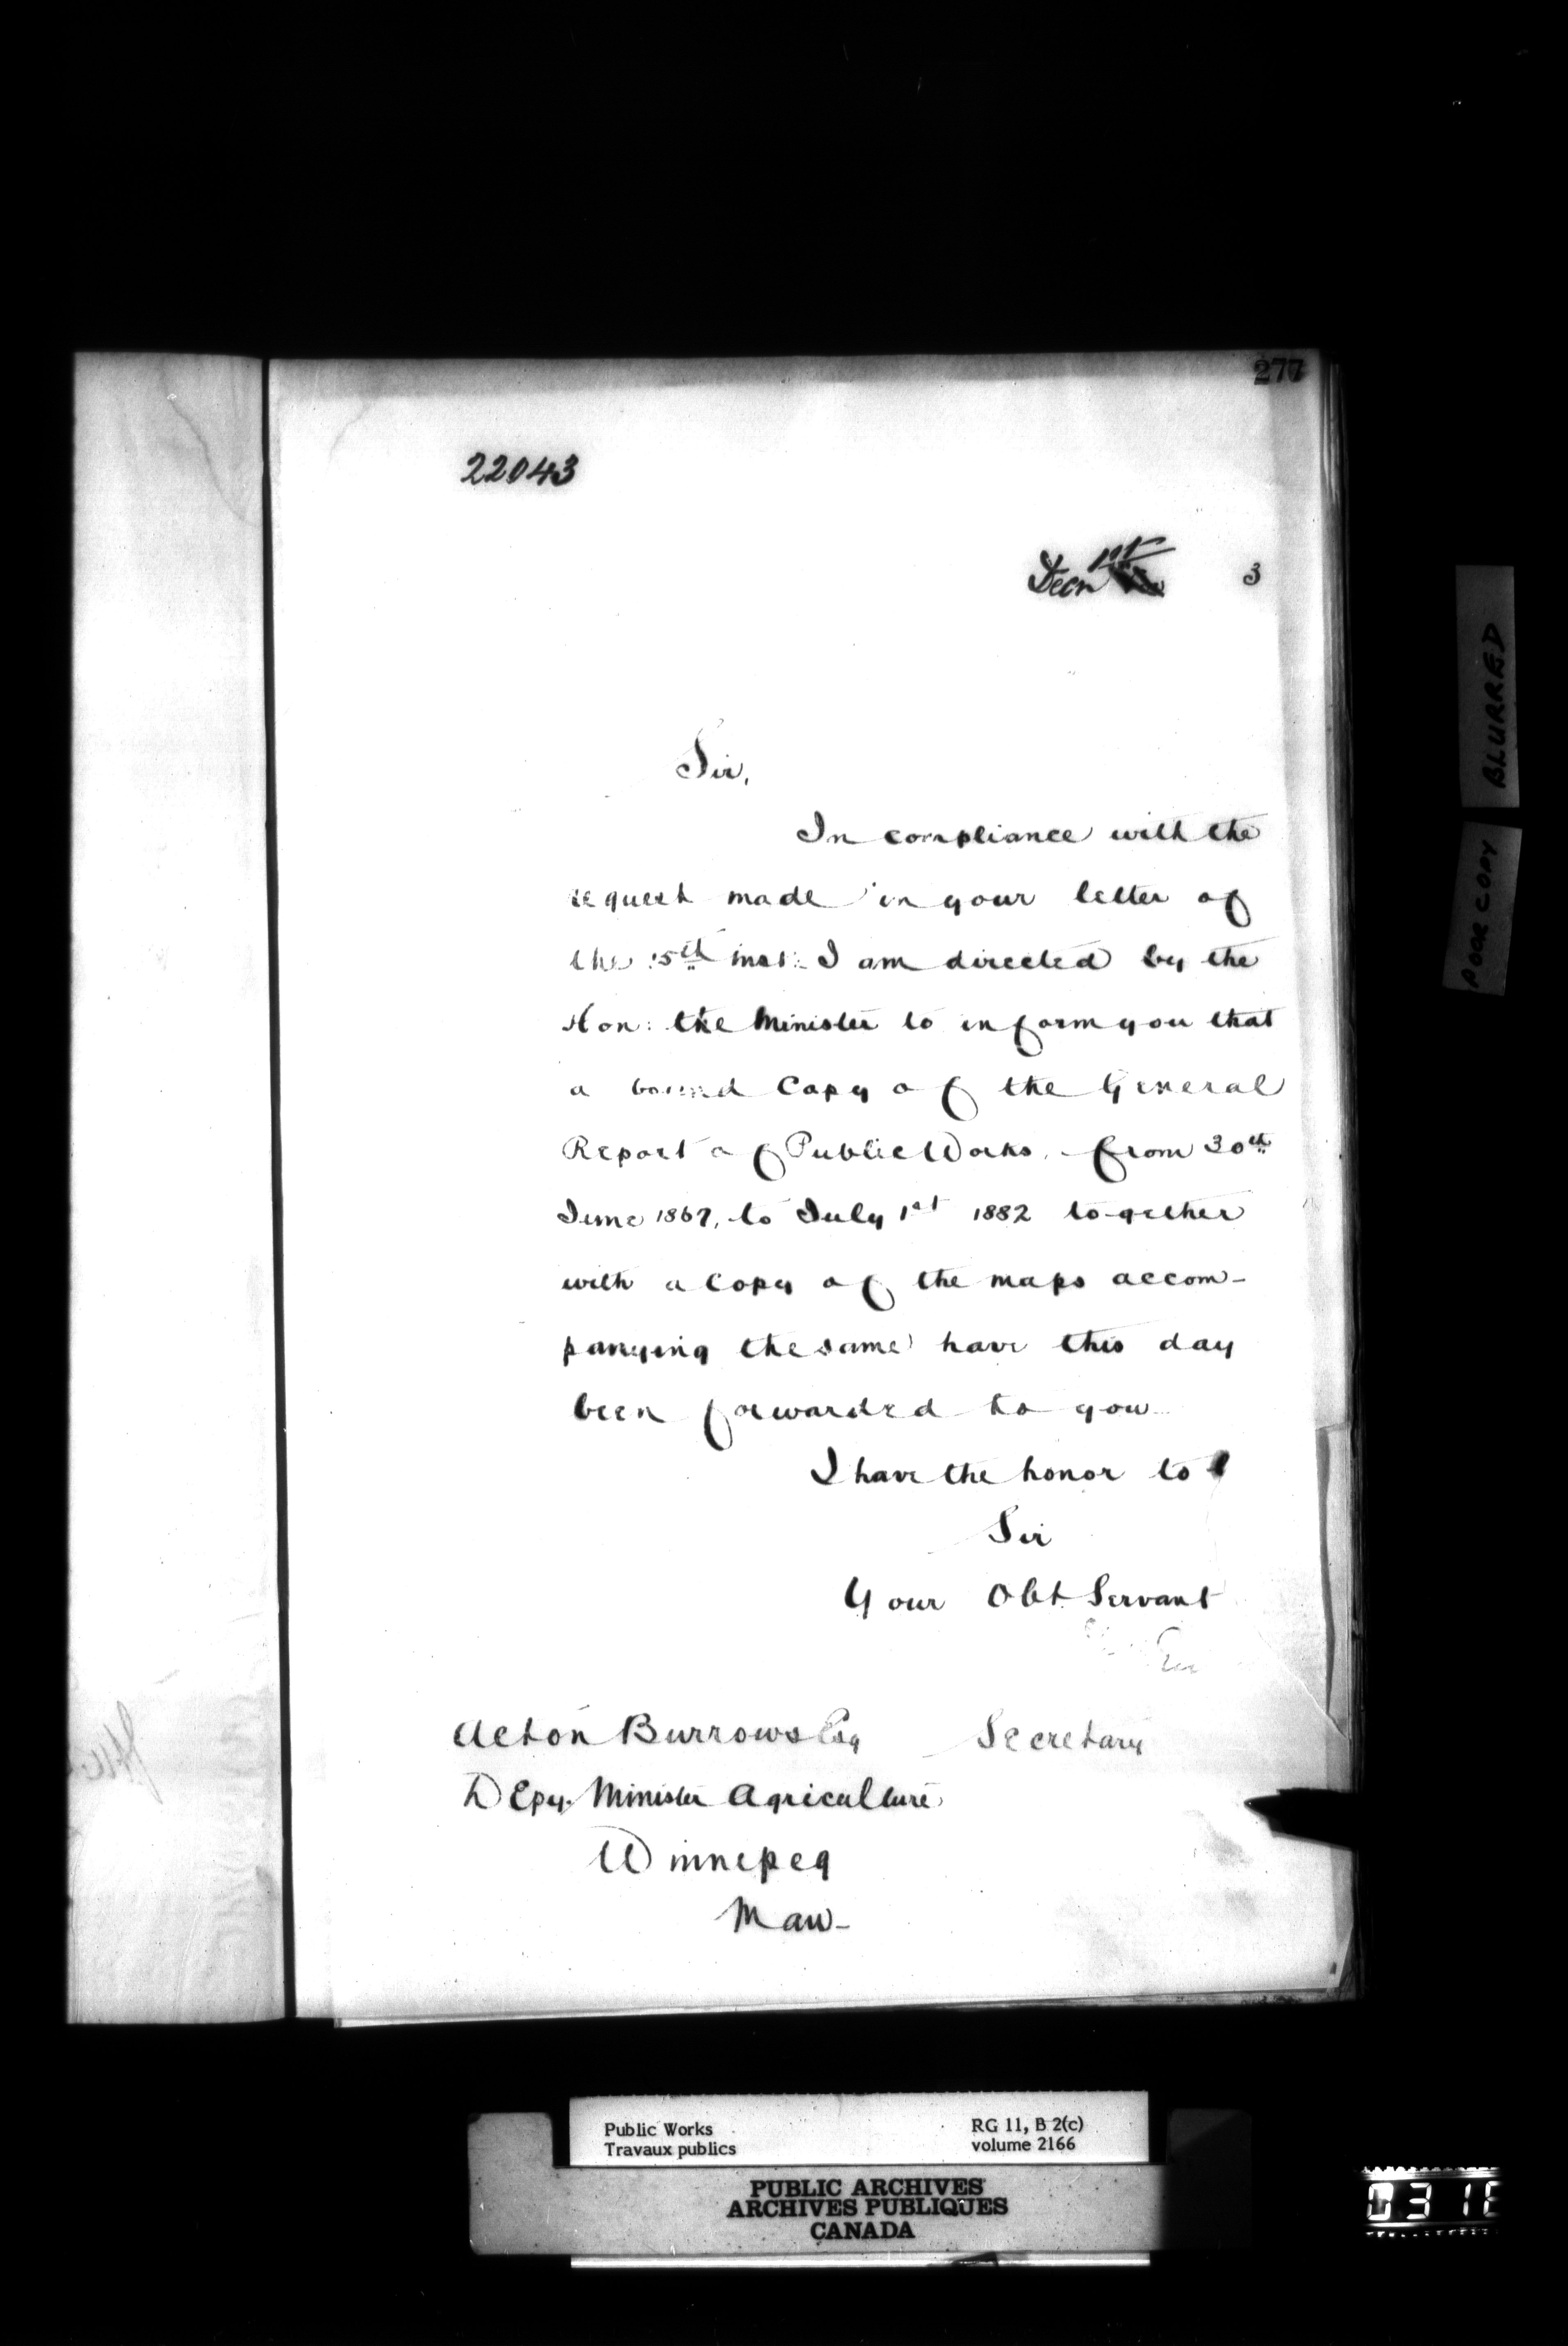 277
22043
Decr 1st 3
Sir,
In compliance with the
request made in your letter of
the 15th inst: I am directed by the
Hon: the Minister to inform you that
a bound Copy of the General
Report of Public Works, from 30th
June 1867, to July 1st 1882 together
with a Copy of the maps accom-
panying the same have this day
been forwarded to you
I have the honor to
Sir
Your Obt Servant
Acton Burrows Esq Secretary
DEpy. Minister Agriculture
Winnepeg
Man-
BLURRED
POOR COPY
Public Works
Travaux publics
RG 11, B 2(c)
volume 2166
PUBLIC ARCHIVES
ARCHIVES PUBLIQUES
CANADA